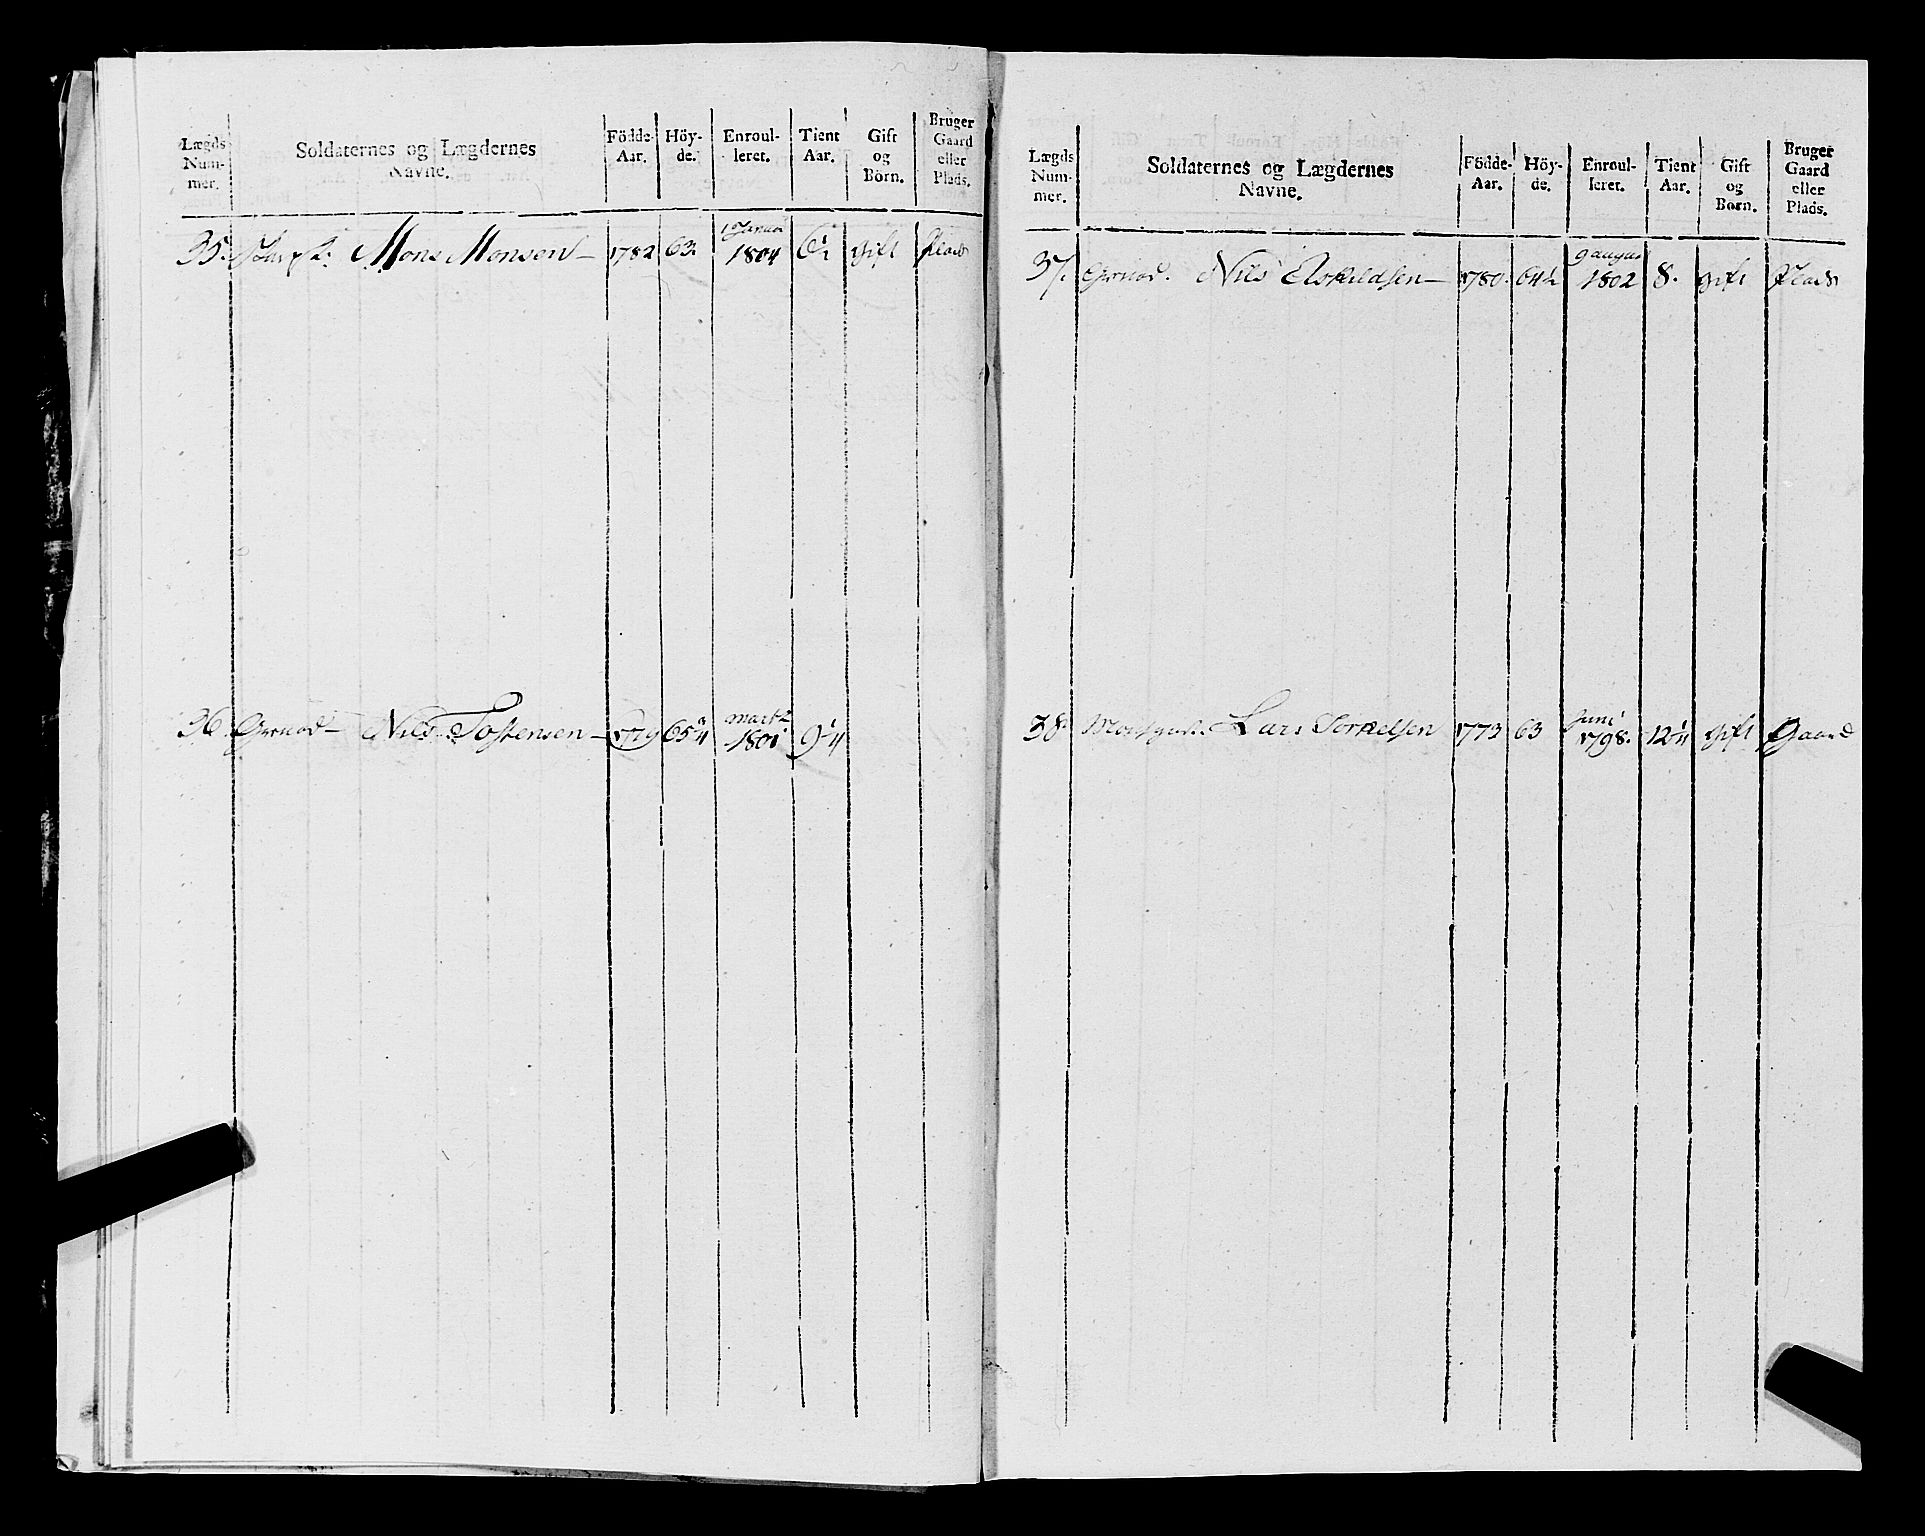 Lægds Num- mer. | Soldaternes og Lægdernes Navne. | Födde- Aar. | Höy- de. | Enroul- leret. | Tient Aar. | Gift og Börn. | Bruger Gaard eller Plads.
35. Skarpsk: Mons Monsen – 1782 63. 1 Januar 1804 6½ gift Plads
36. Grenad – Nils Tostensen – 1779 65¾ Mart 1801 9¼
Lægds Num- mer. | Soldaternes og Lægdernes Navne. | Födde- Aar. | Höy- de. | Enroul- leret. | Tient Aar. | Gift og Börn. | Bruger Gaard eller Plads.
37. Grenad. Nils Askildsen – 1780. 64½ 9 august 1802 8. gift Plads
38. Lars 1773 63 Juni 1798. 12 gift Gaard